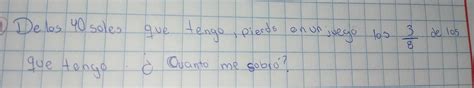 De los 40 soles que tengo, pierdo en un juego los 3/8 de los
que tengo. ¿ Cuanto me sobró?